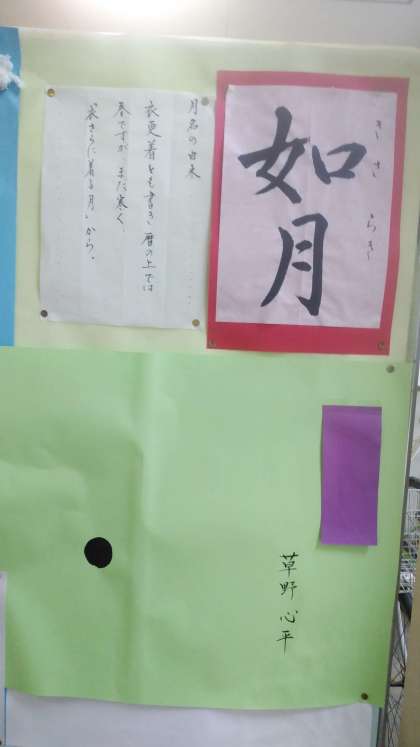 如月
きさらぎ
月名の由来
衣更着とも書き暦の上では
春ですが、まだ寒く、
衣さらに着る月」から。
草野心平